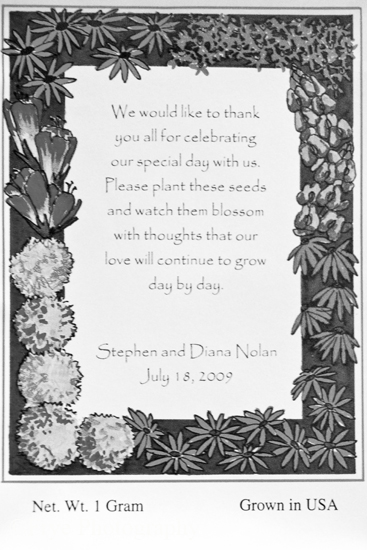 We would like to thank
you all for celebrating
our special day with us.
Please plant these seeds
and watch them blossom
with thoughts that our
love will continue to grow
day by day.
Stephen and Diana Nolan
July 18, 2009
Net. Wt. 1 Gram
Grown in USA